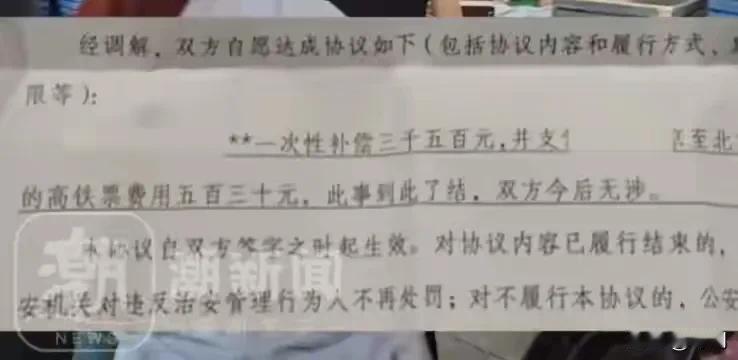 经调解，双方自愿达成协议如下（包括协议内容和履行方式、
限等）：
**一次性补偿三千五百元，并支 至北
的高铁票费用五百三十元，此事到此了结，双方今后无涉。
本协议自双方签字之时起生效。对协议内容已履行结束的，
安机关对违反治安管理行为人不再处罚；对不履行本协议的，公安
潮 潮新闻
NEWS